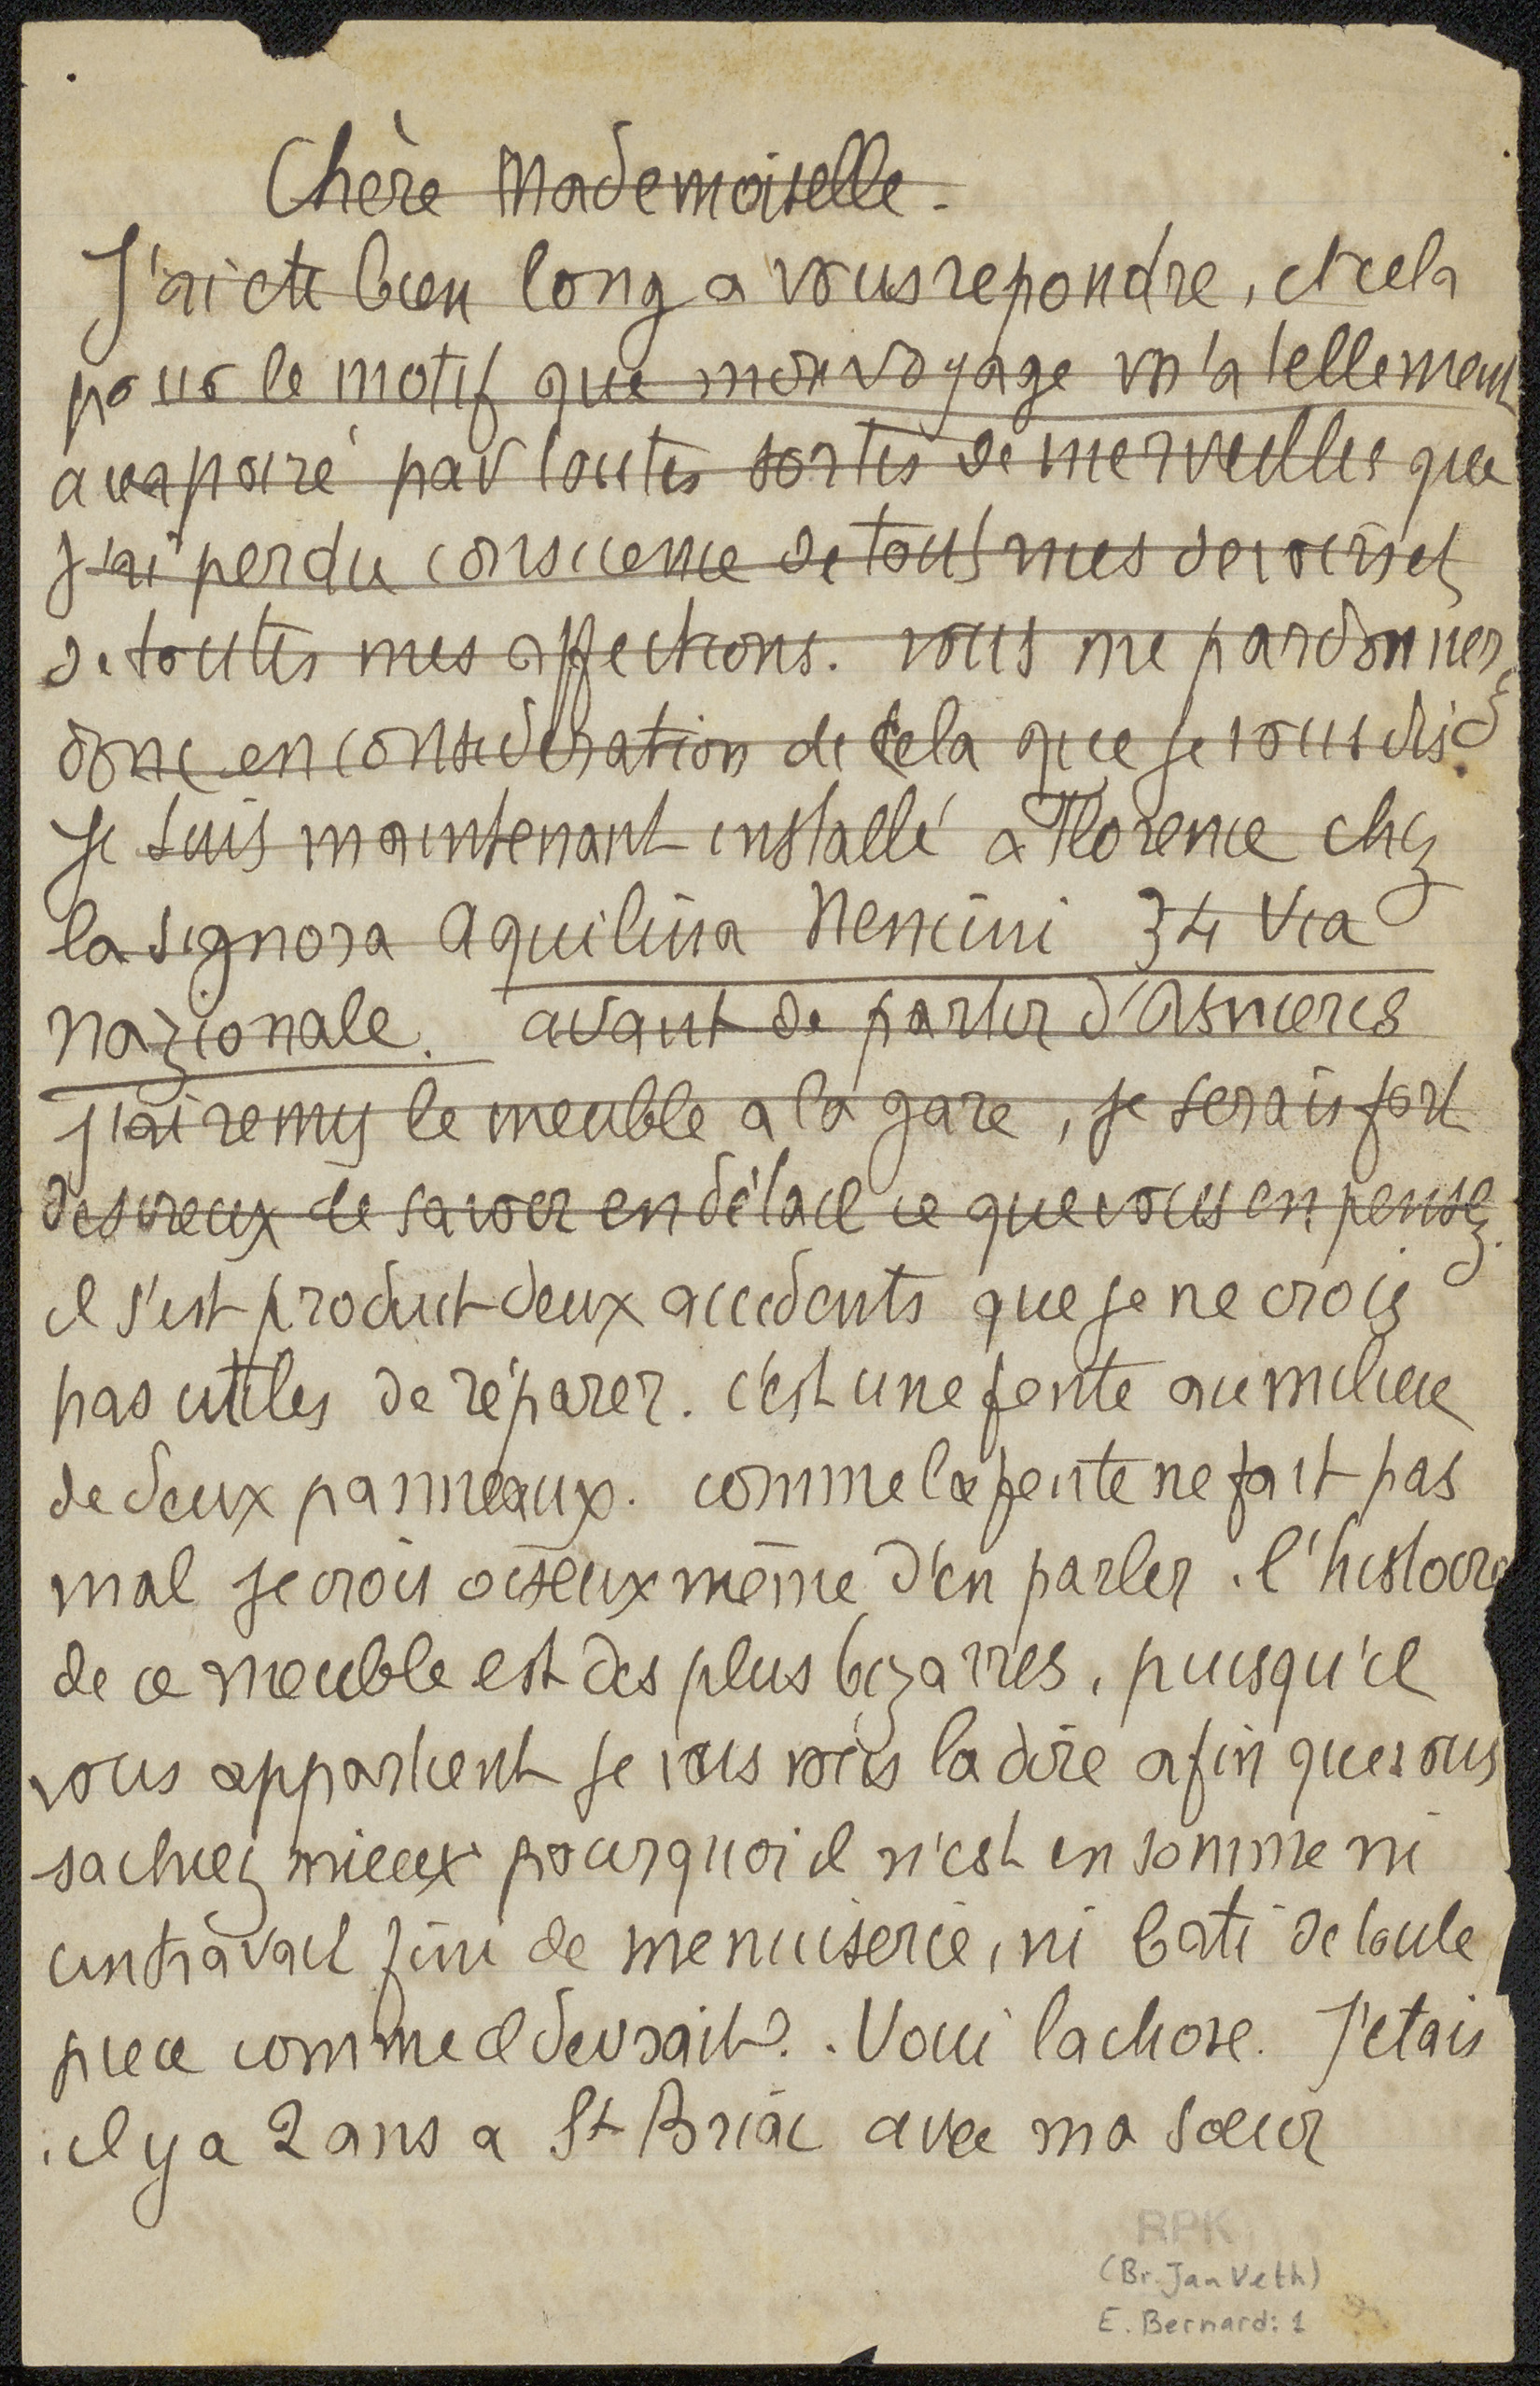 Chère Mademoiselle.
J'ai ete bien long a vous repondre, et cela
pour le motif que mon voyage m'a tellement
accaparé par toutes sortes de merveilles que
j'ai perdu conscience de tous mes devoirs et
de toutes mes affections. vous me pardonnerez
donc en consideration de cela que je vous dis.
Je suis maintenant installé a Florence chez
la signora Aquilina Nencini 34 Via
Nazionale. avant de partir d'Asnieres
j'ai remis le meuble a la gare, je serais fort
desireux de savoir en détail ce que vous en pensez.
il s'est produit deux accidents que je ne crois
pas utiles de réparer. c'est une fente au milieu
de deux panneaux. comme la fente ne fait pas
mal je crois oiseux même d'en parler. l'histoire
de ce meuble est des plus bizarres, puisqu'il
vous appartient je vous vais la dire afin que vous
sachiez mieux pourquoi il n'est en somme ni
un travail fini de menuiserie, ni bati de toute
piece comme il devrait. Voici la chose. J'etais
il y a 2 ans a St Briac avec ma sœur
RPK
(Br. Jan Veth)
E. Bernard: 1